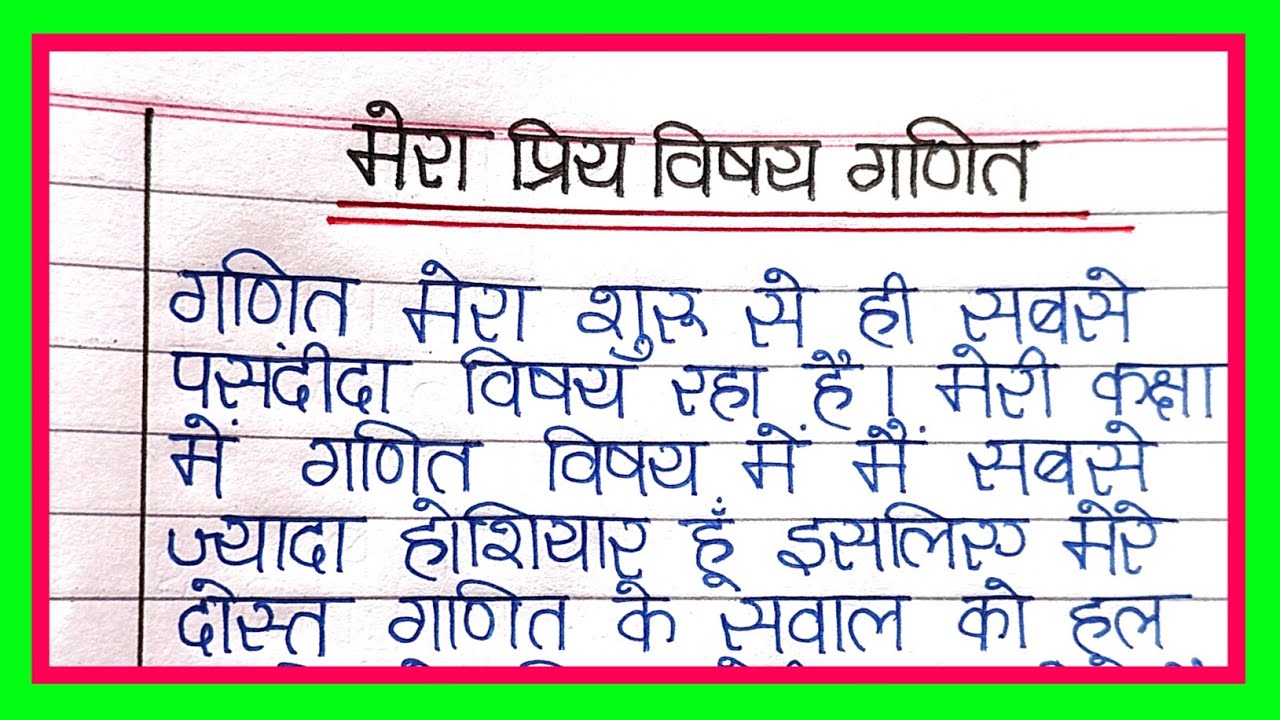 मेरा प्रिय विषय गणित
गणित मेरा शुरू से ही सबसे
पसंदीदा विषय रहा है। मेरी कक्षा
में गणित विषय में मैं सबसे
ज्यादा होशियार हूँ इसलिए मेरे
दोस्त गणित के सवाल को हल